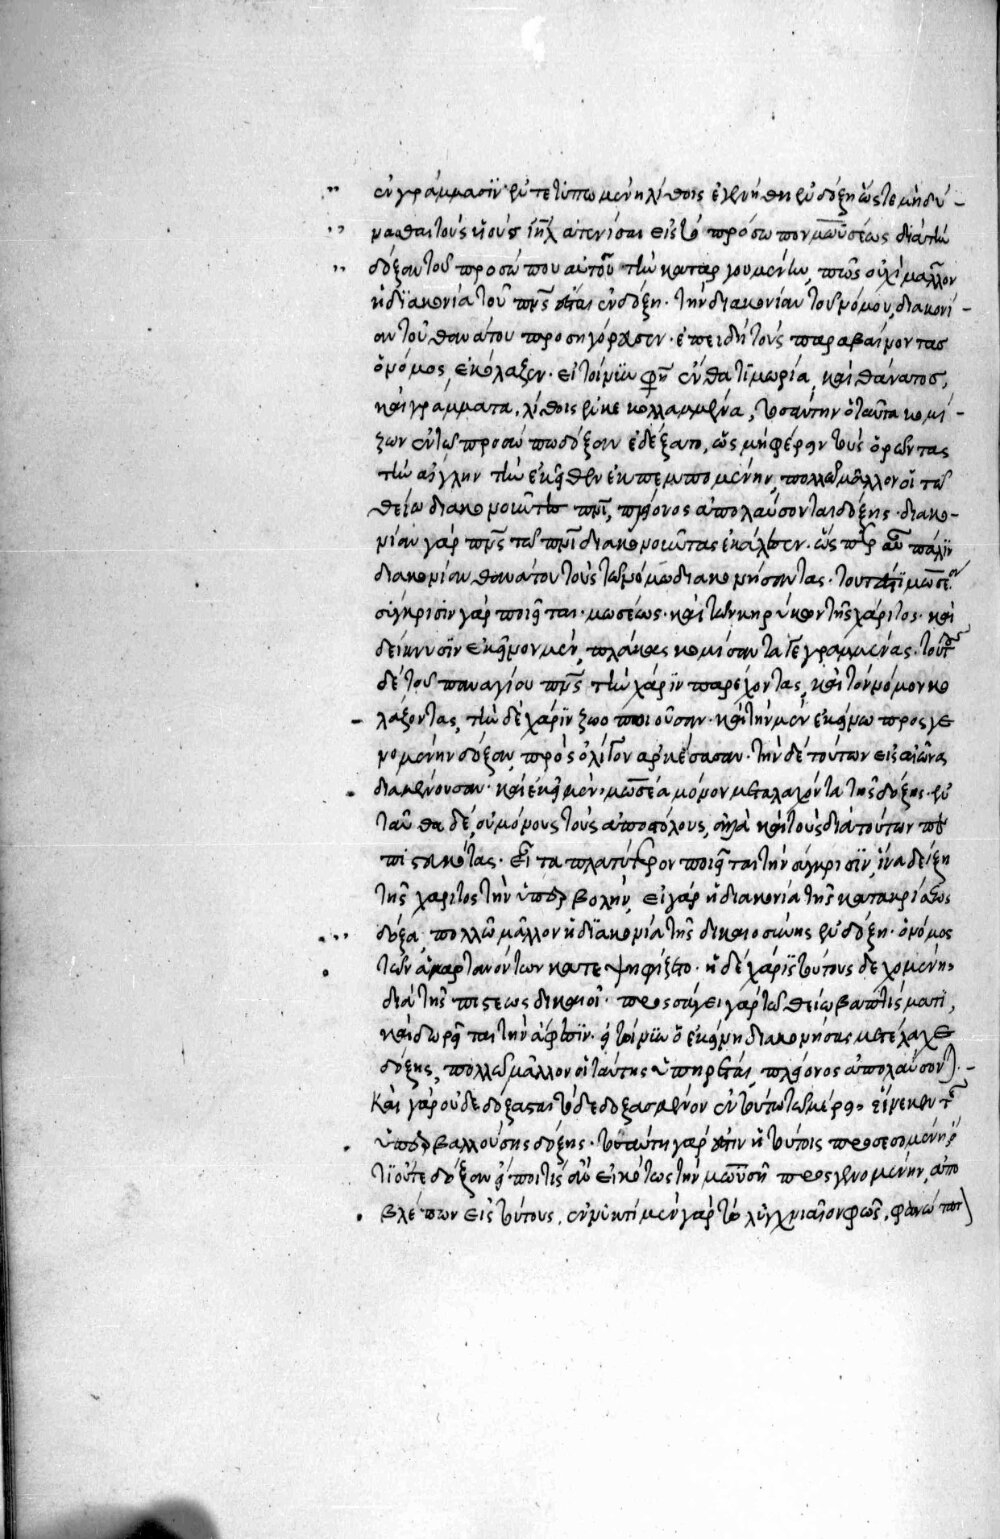 ἐν γράμμασιν ἐντετυπωμένη λίθοις ἐγενήθη ἐν δόξῃ ὥστε μὴ δύ-
νασθαι τοὺς υἱοὺς ἰηλ ἀτενίσαι εἰς τὸ πρόσωπον μωϋσέως διὰ τὴν
δόξαν τοῦ προσώπου αὐτοῦ τὴν καταργουμένην, πῶς οὐχὶ μᾶλλον
ἡ διακονία τοῦ πνς ἔσται ἐν δόξῃ· τὴν διακονίαν τοῦ νόμου, διακονί-
αν τοῦ θανάτου προσηγόρευσεν· ἐπειδὴ τοὺς παραβαίνοντας
ὁ νόμος, ἐκόλαζεν· εἰ τοίνυν φησὶν ἔνθα τιμωρία, καὶ θάνατος,
καὶ γράμματα, λίθοις ἐγκεκολλαμμένα, τοσαύτην ὁ ταῦτα κομί-
ζων ἐν τῷ προσώπῳ δόξαν ἐδέξατο, ὡς μὴ φέρειν τοὺς ὁρῶντας
τὴν αἴγλην τὴν ἐκεῖθεν ἐκπεμπομένην, πολλῷ μᾶλλον οἱ τῷ
θείῳ διακονοῦντες πνι, πλείονος ἀπολαύσονται δόξης· διακο-
νίαν γὰρ πνς τῷ πνι διακονοῦντας ἐκάλεσεν· ὥσπερ αὖ πάλιν
διακονίαν θανάτου τοὺς τῷ νόμῳ διακονήσαντας· τουτέστι μωσέα
σύγκρισιν γὰρ ποιεῖται· μωσέως· καὶ τῶν κηρύκων τῆς χάριτος· καὶ
δείκνυσιν ἐκεῖνον μὲν, πλάκας κομίσαντα γεγραμμένας· τούτους
δὲ τοῦ παναγίου πνς τὴν χάριν παρέχοντας, καὶ τὸν νόμον κο
λάζοντας, τὴν δὲ χάριν ζωοποιοῦσαν· καὶ τὴν μὲν ἐκείνῳ προσγε
νομένην δόξαν, πρὸς ὀλίγον ἀρκέσασαν· τὴν δὲ τούτων εἰς αἰῶνας
διαμένουσαν· καὶ ἐκεῖ μὲν μωσέα μόνον μεταλαχόντα τῆς δόξης· ἐν
ταῦθα δέ, οὐ μόνους τοὺς ἀποστόλους, ἀλλὰ καὶ τοὺς διὰ τούτων πε
πιστευκότας· εἶτα πλατύτερον ποιεῖται τὴν σύγκρισιν, ἵνα δείξῃ
τῆς χάριτος τὴν ὑπερβολὴν, εἰ γὰρ ἡ διακονία τῆς κατακρίσεως
δόξα, πολλῷ μᾶλλον ἡ διακονία τῆς δικαιοσύνης ἐν δόξῃ· ὁ νόμος
τῶν ἁμαρτανόντων κατεψηφίζετο· ἡ δὲ χάρις τούτους δεχομένη,
διὰ τῆς πίστεως δικαιοῖ· προσάγει γὰρ τῷ θείῳ βαπτίσματι,
καὶ δωρεῖται τὴν ἄφεσιν· εἰ τοίνυν ὁ ἐκείνῃ διακονήσας μετέλαχε
δόξης, πολλῷ μᾶλλον οἱ ταύτης ὑπηρέται, πλείονος ἀπολαύσονται.-
Καὶ γὰρ οὐδὲ δεδόξασται τὸ δεδοξασμένον ἐν τούτῳ τῷ μέρει, εἵνεκεν τῆς
ὑπερβαλλούσης δόξης· τοσαύτη γὰρ ἐστιν ἡ τούτοις προσεσομένη, ὅ
τι οὔτε δόξαν εἴποι τις ἂν εἰκότως τὴν μωϋσῇ προσγενομένην, ἀπο
βλέπων εἰς τούτους, ἐν νυκτὶ μὲν γὰρ τὸ λυχνιαῖον φῶς, φανώτατ